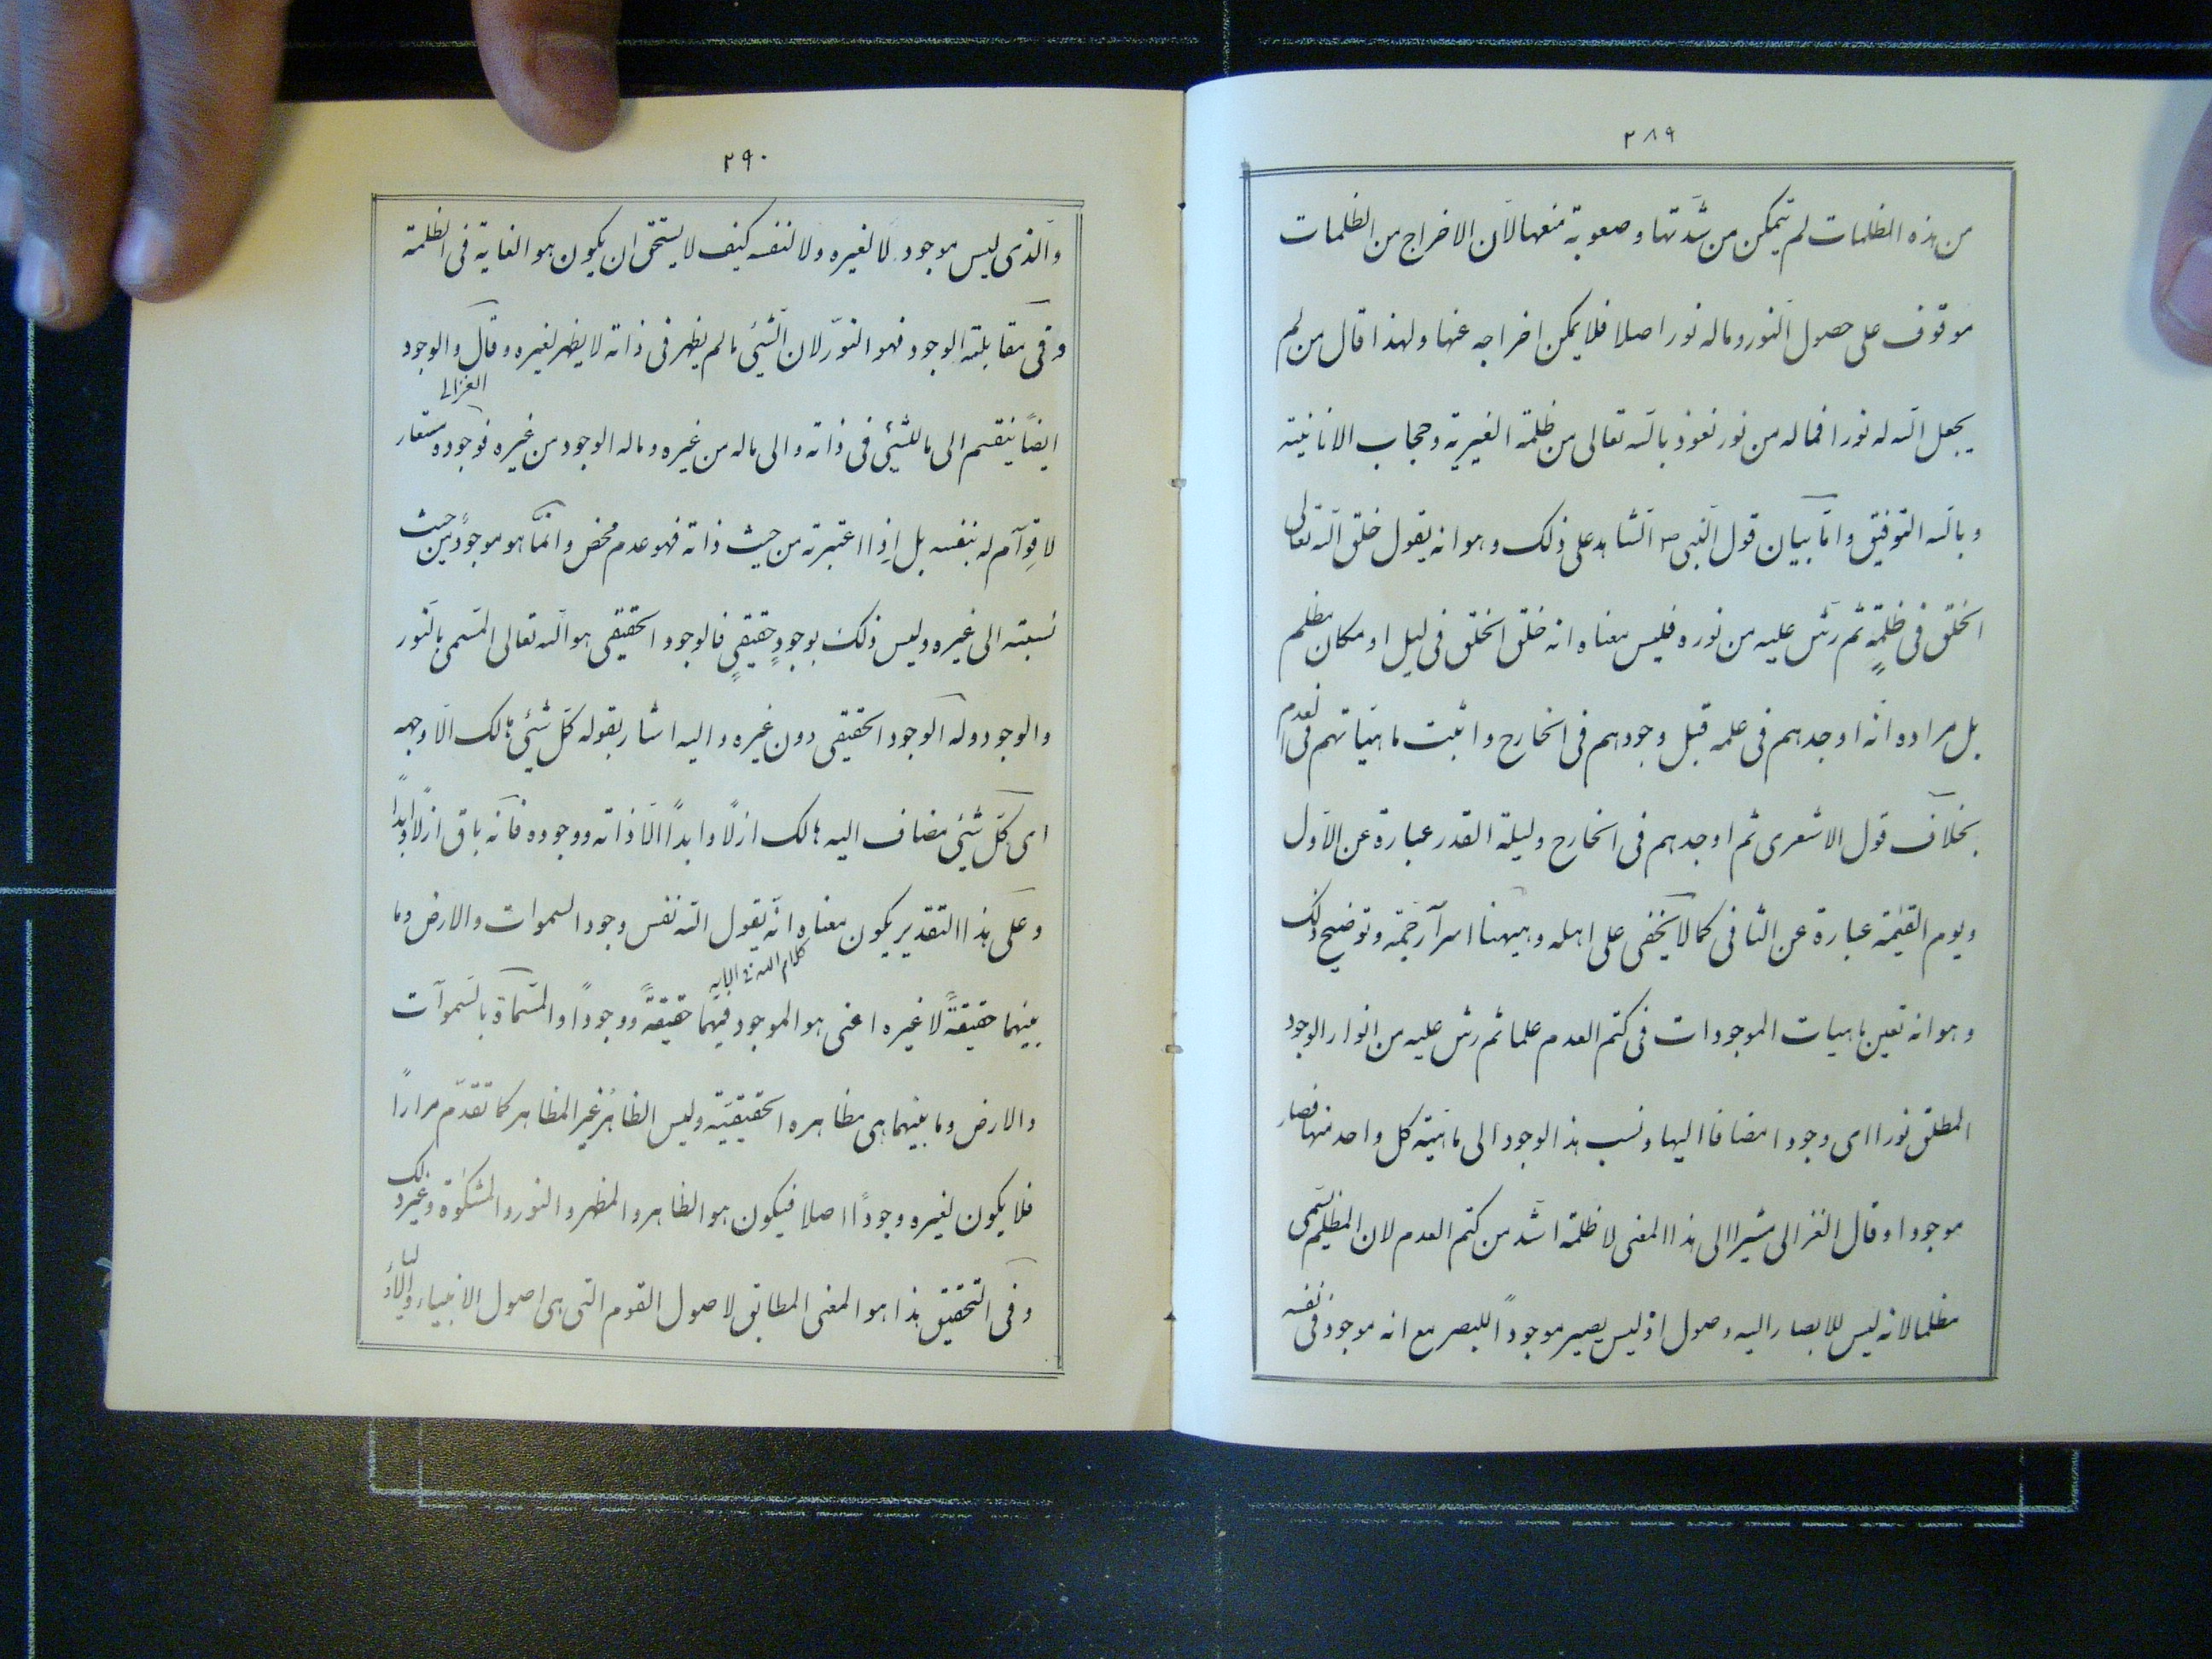 ٢٨٩
من هذه الظلمات لم يتمكن من شدتها وصعوبة منعها لان الاخراج من الظلمات
موقوف على حصول النور وما له نور اصلا فلا يمكن اخراجه عنها ولهذا قال من لم
يجعل الله له نورا فما له من نور نعوذ بالله تعالى من ظلمة الغيرية وحجاب الانانية
وبالله التوفيق واما بيان قول النبى ص الشاهد على ذلك وهو انه يقول خلق الله تعالى
الخلق فى ظلمةٍ ثم رش عليه من نوره فليس معناه انه خلق الخلق فى ليل او مكان مظلم
بل مراده انه اوجدهم فى علمه قبل وجودهم فى الخارج واثبت ماهياتهم فى العدم
بخلاف قول الاشعرى ثم اوجدهم فى الخارج وليلة القدر عبارة عن الاول
ويوم القيمة عبارة عن الثانى كما لا يخفى على اهله وهيهنا اسرار جمة وتوضيح ذلك
وهو انه تعين ماهيات الموجودات فى كتم العدم علما ثم رش عليه من انوار الوجود
المطلق نورا اى وجودا مضافا اليها ونسب هذا الوجود الى ماهية كل واحد منها فصار
موجودا وقال الغزالى مشيرا الى هذا المعنى لا ظلمة اشد من كتم العدم لان المظلم يسمى
مظلما لانه ليس للابصار اليه وصول اذ ليس يصير موجوداً للبصر مع انه موجود فى نفسه
٢٩٠
والذى ليس موجود لا لغيره ولا لنفسه كيف لا يستحق ان يكون هو الغاية فى الظلمة
وفى مقابلته الوجود فهو النور لان الشئ ما لم يظهر فى ذاته لا يظهر لغيره وقال والوجود
الغزالى
ايضاً ينقسم الى ما للشئ فى ذاته والى ما له من غيره وما له الوجود من غيره فوجوده مستعار
لا قوام له بنفسه بل اذا اعتبرته من حيث ذاته فهو عدم محض وانما هو موجودٌ من حيث
نسبته الى غيره وليس ذلك بوجودٍ حقيقىٍ فالوجود الحقيقى هو الله تعالى المسمى بالنور
والوجود وله الوجود الحقيقى دون غيره واليه اشار بقوله كل شئ هالك الا وجهه
اى كل شئ مضاف اليه هالك ازلاً وابداً الا ذاته ووجوده فانه باق ازلاً وابداً
وعلى هذا التقدير يكون معناه انه يقول الله نفس وجود السموات والارض وما
كلام الله فى الاية
بينهما حقيقةً لا غيره اعنى هو الموجود فيهما حقيقةً ووجوداً والمسماة بالسموات
والارض وما بينهما هى مظاهره الحقيقية وليس الظاهر غير المظاهر كما تقدم مراراً
فلا يكون لغيره وجوداً اصلا فيكون هو الظاهر والمظهر والنور والمشكوة وغير ذلك
وفى التحقيق هذا هو المعنى المطابق لاصول القوم التى هى اصول الانبياء والاولياء